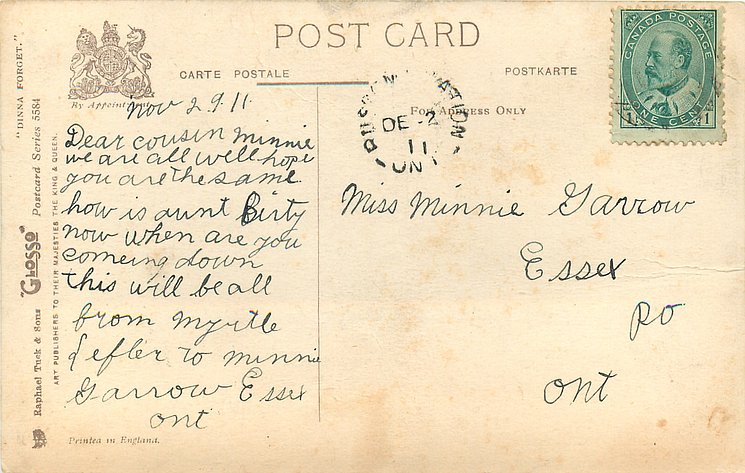 POST CARD
CARTE POSTALE
POSTKARTE
By Appointment
For Address Only
"DINNA FORGET."
Raphael Tuck & Sons "GLOSSO" Postcard Series 5584
ART PUBLISHERS TO THEIR MAJESTIES THE KING & QUEEN.
CANADA POSTAGE
ONE CENT
1 1
DE - 2
11
ONT
Nov 29 11
Dear cousin Minnie
we are all well hope
you are the same
how is aunt Birty
now when are you
comeing down
this will be all
from Myrtle
to Minnie
Garrow Essex
ont
Miss Minnie Garrow
Essex
PO
Ont
Printed in England.